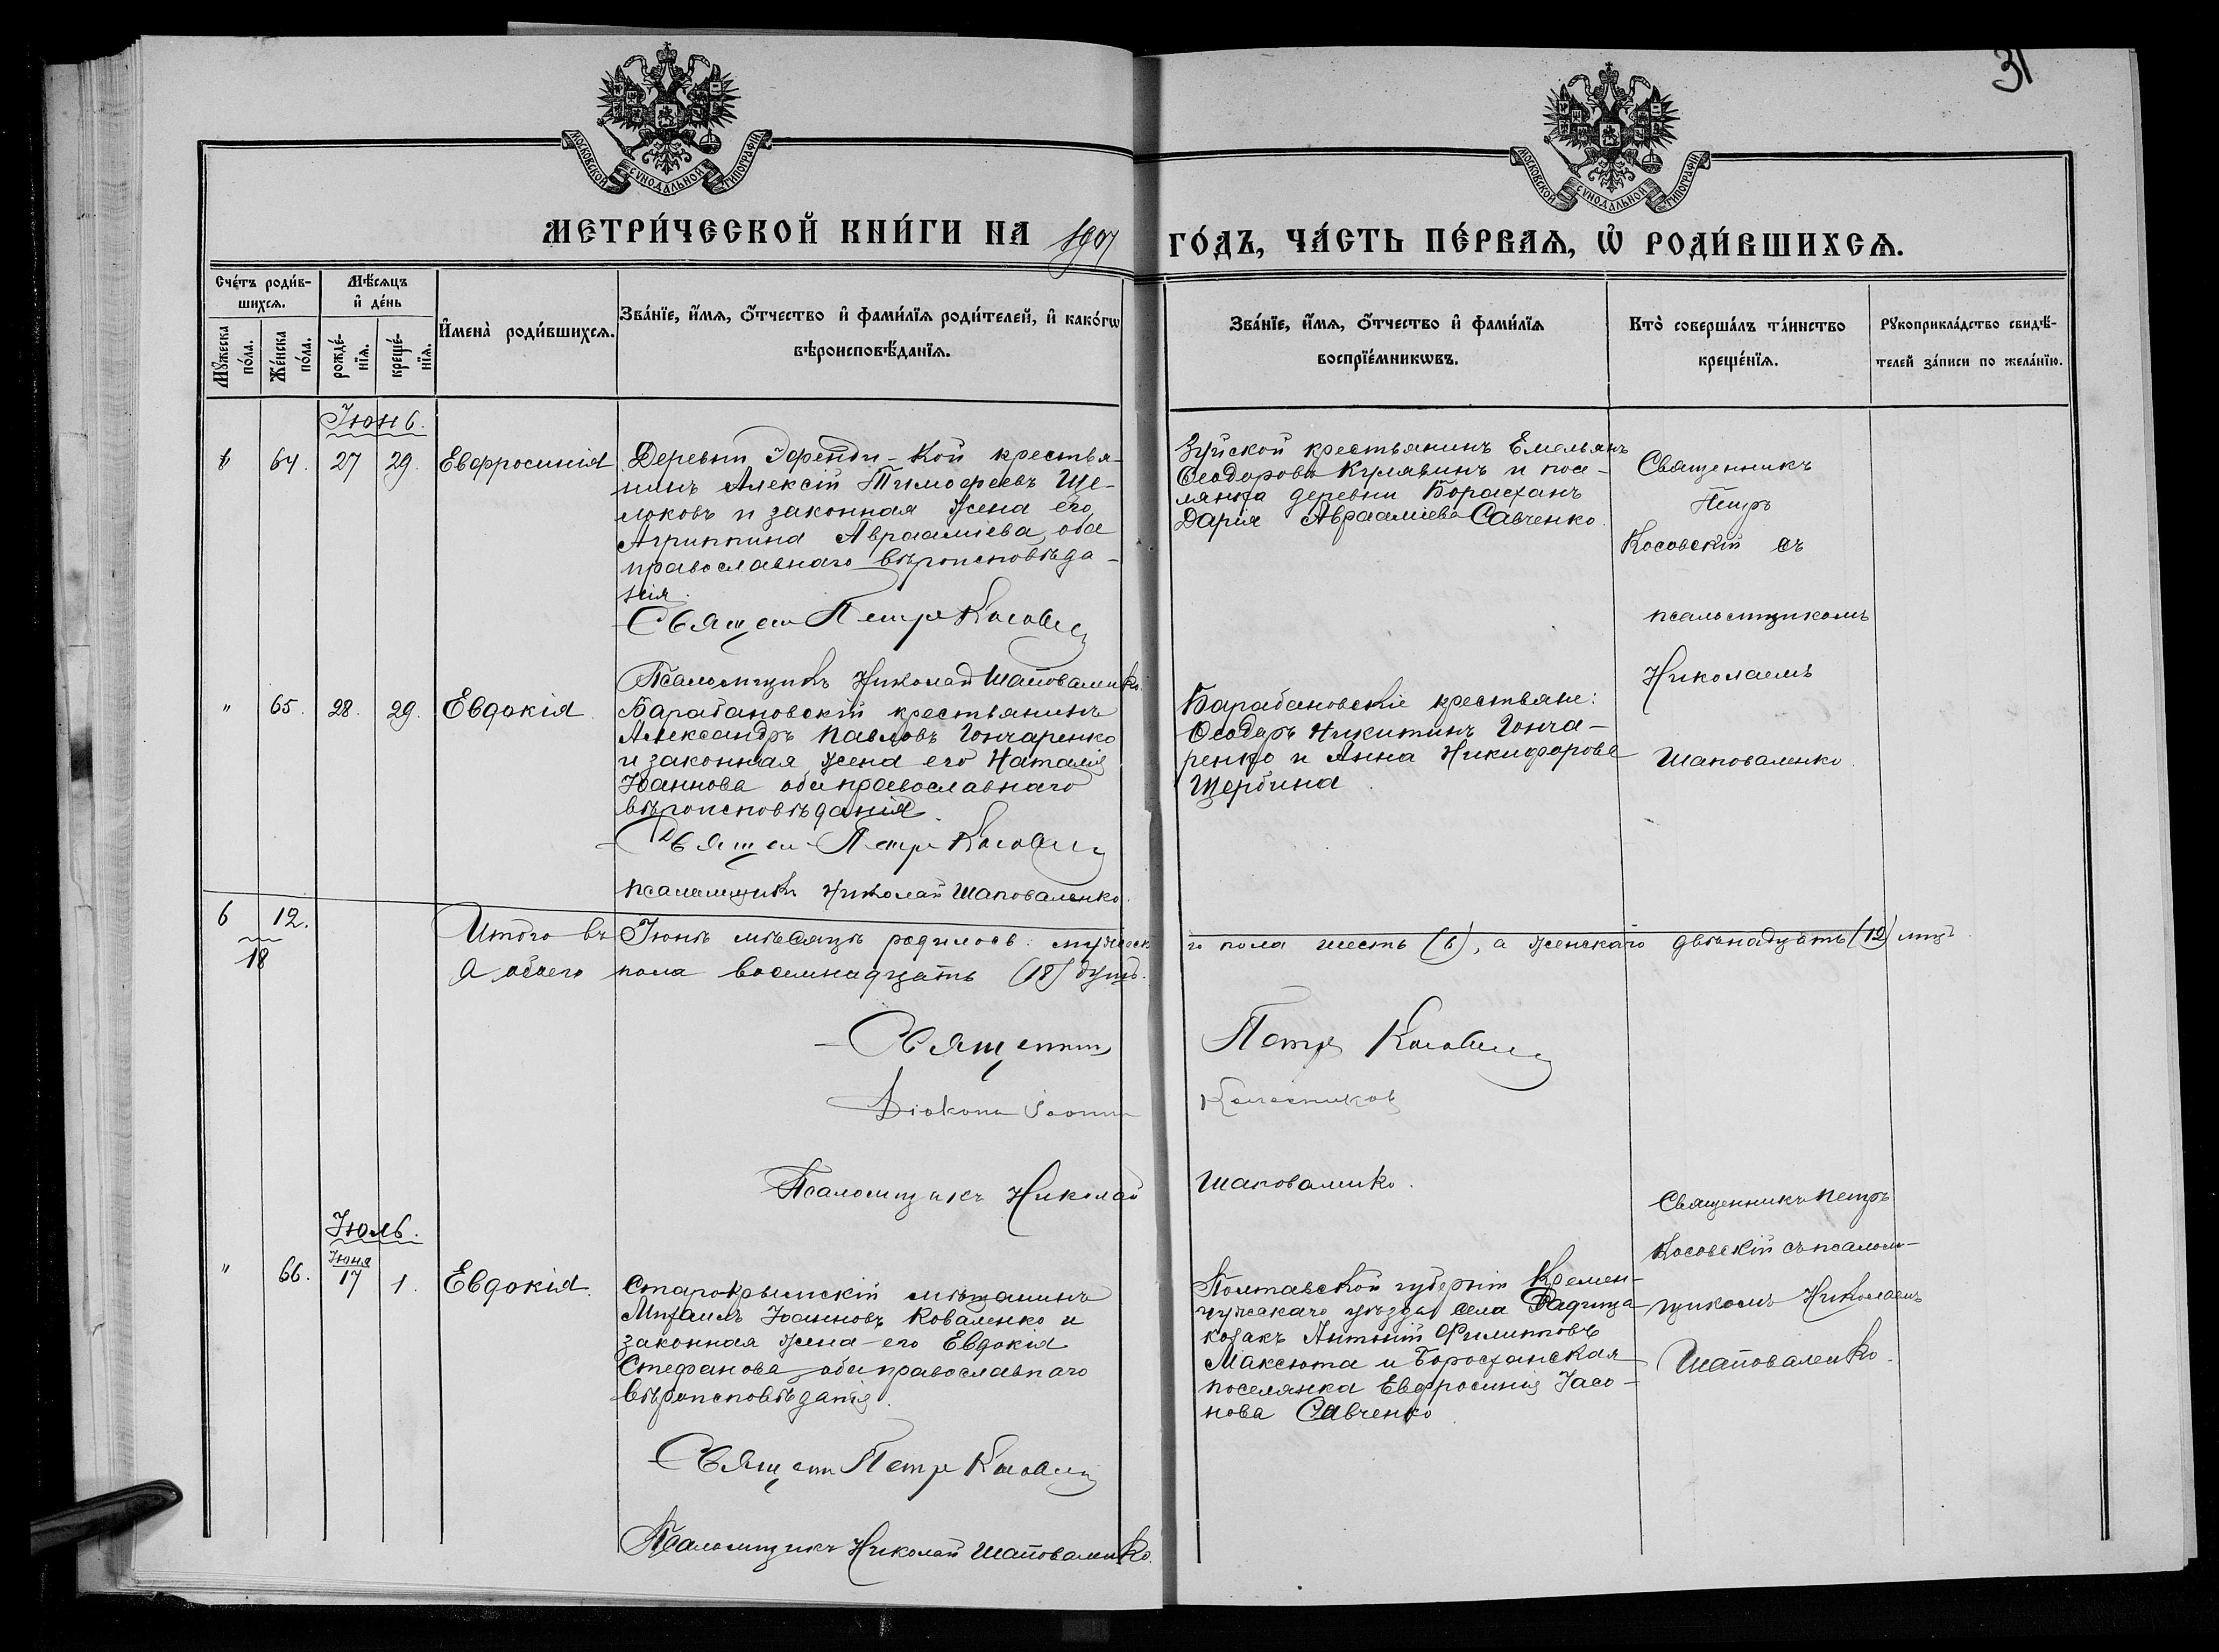 31
МОСКОВСКОЙ СѴНОДАЛЬНОЙ ТИПОГРАФІИ
МОСКОВСКОЙ СѴНОДАЛЬНОЙ ТИПОГРАФІИ
МЕТРИ́ЧЕСКОЙ КНИ́ГИ НА 1907 ГО́ДЪ, ЧА́СТЬ ПЕ́РВАѦ, Ѡ РОДИ́ВШИХСѦ.
Сче́тъ роди́в-
шихсѧ.
Мꙋ́жеска по́ла.
Же́нска по́ла.
Мѣ́сѧцъ
и де́нь
рожде́-
нїѧ.
креще́-
нїѧ.
И҆мена̀ роди́вшихсѧ.
Зва́нїе, и҆́мѧ, ѻ҆́тчество и҆ фами́лїѧ роди́телей, и҆ како́гѡ
вѣроисповѣ́данїѧ.
Зва́нїе, и҆́мѧ, ѻ҆́тчество и҆ фами́лїѧ
воспрїе́мникѡвъ.
Кто̀ соверша́лъ та́инство
креще́нїѧ.
Рꙋкоприкла́дство свидѣ́-
телей за́писи по жела́нїю.
Іюнь.
64. 27 29. Евфросинія
Деревни Эфенди-Кой крестья-
нинъ Алексій Тимофеевъ Ще-
локовъ и законная жена его
Агриппина Авраамiева, оба
православнаго вѣроисповѣда-
нія.
Священ Петръ Косовскій
Псаломщикъ Николай Шаповаленко.
Зуйской крестьянинъ Емельянъ
Ѳеодоровъ Кулявинъ и посе-
лянка деревни Борасханъ
Дарія Авраамiева Савченко.
Священникъ
Петръ
Косовскій съ
псаломщикомъ
Николаемъ
Шаповаленко.
" 65. 28. 29. Евдокія.
Барабановскій крестьянинъ
Александръ Павловъ Гончаренко
и законная жена его Наталія
Іоаннова оба православнаго
вѣроисповѣданія.
Священ Петръ Косовскій
псаломщикъ Николай Шаповаленко.
Барабановскіе крестьяне:
Ѳеодоръ Никитинъ Гонча-
ренко и Анна Никифорова
Щербина.
6 12.
18
Итого въ Іюнѣ мѣсяцѣ родилось: мужеск го пола шесть (6), а женскаго двѣнадцать (12) лицъ
а обоего пола восемнадцать (18) душъ.
Священникъ Петръ Косовскій
Діаконъ Іоаннъ Колесниковъ
Псаломщикъ Николай Шаповаленко.
Іюль.
" 66. Іюня 17 1. Евдокія.
Старокрымскій мѣщанинъ
Михаилъ Іоанновъ Коваленко и
законная жена его Евдокія
Стефанова, оба православнаго
вѣроисповѣданія.
Священ Петръ Косовскій
Псаломщикъ Николай Шаповаленко.
Полтавской губерніи Кремен-
чужскаго уѣзда села
козакъ Антоній Филипповъ
Максюта и Боросханская
поселянка Евфросинія Іасо-
нова Савченко.
Священникъ Петръ
Косовскій съ псалом-
щикомъ Николаемъ
Шаповаленко.